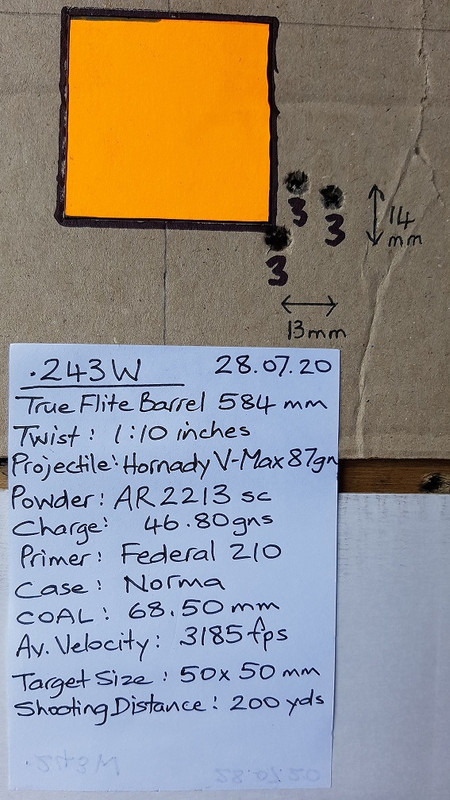 3
3
3
14
mm
13mm
.243W 28.07.20
True Flite Barrel 584 mm
Twist: 1:10 inches
Projectile: Hornady V-Max 87gn
Powder: AR2213 sc
Charge: 46.80gns
Primer: Federal 210
Case: Norma
COAL: 68.50 mm
Av. Velocity: 3185 fps
Target Size: 50x50 mm
Shooting Distance: 200 yds
.243W 28.07.20